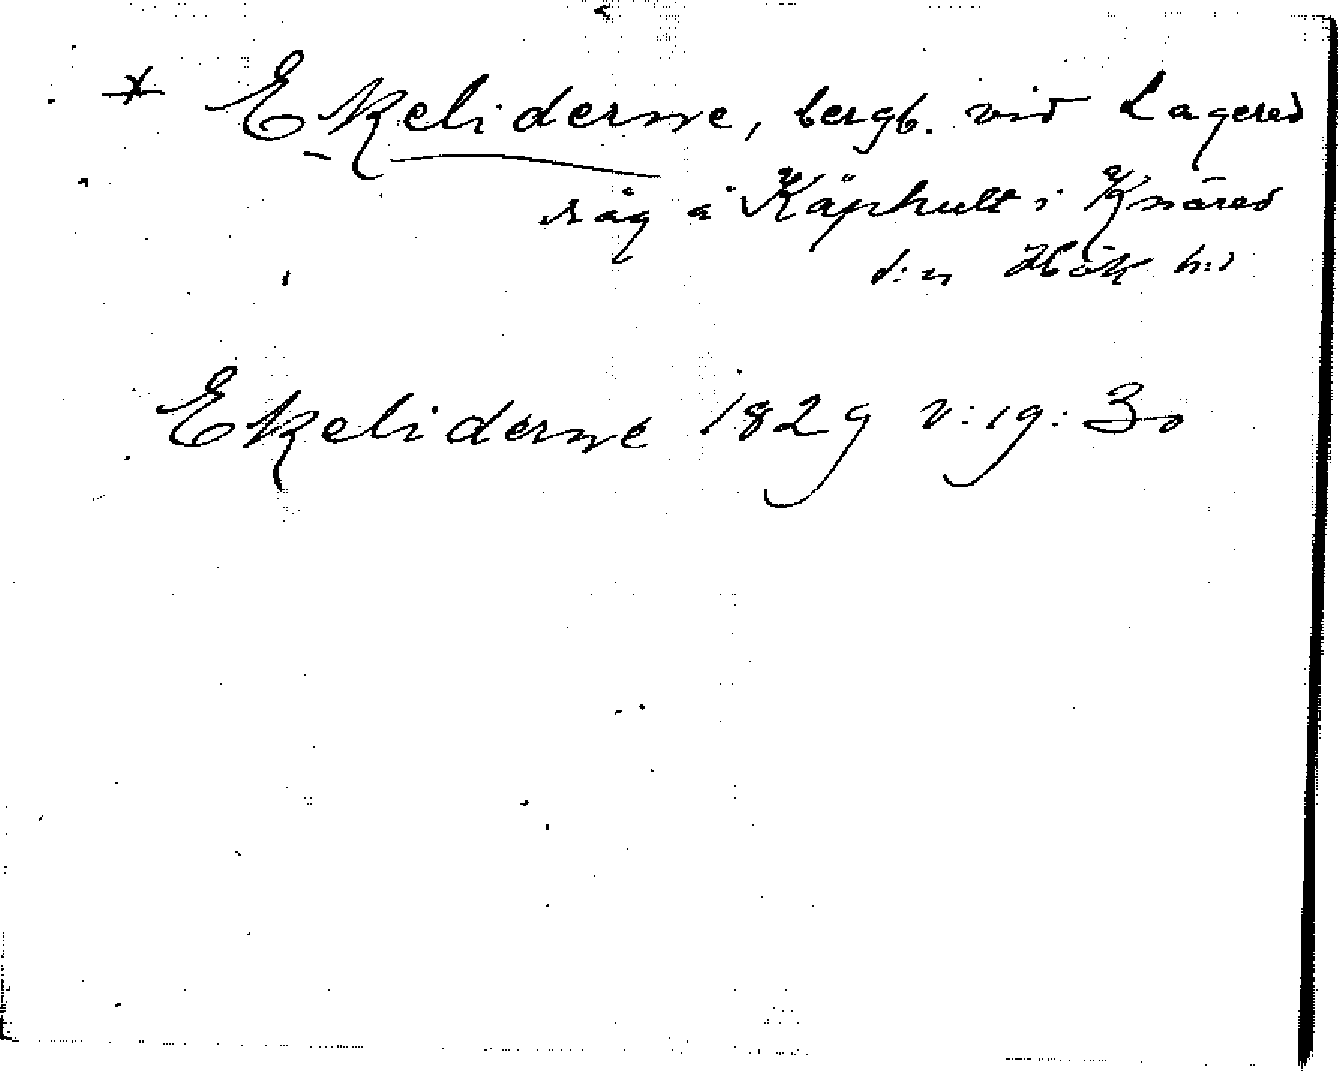 * Ekeliderne, bergb. vid Lagered
råg å Käphult i Knäred
s:n Hök h:d
Ekeliderne 1829 V:19:30